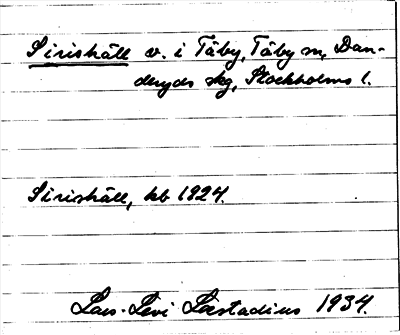 Sirishäll v. i Täby, Täby sn, Dan-
deryds skg, Stockholms l.
Sirishäll, kb 1924.
Lars-Levi Læstadius 1934.